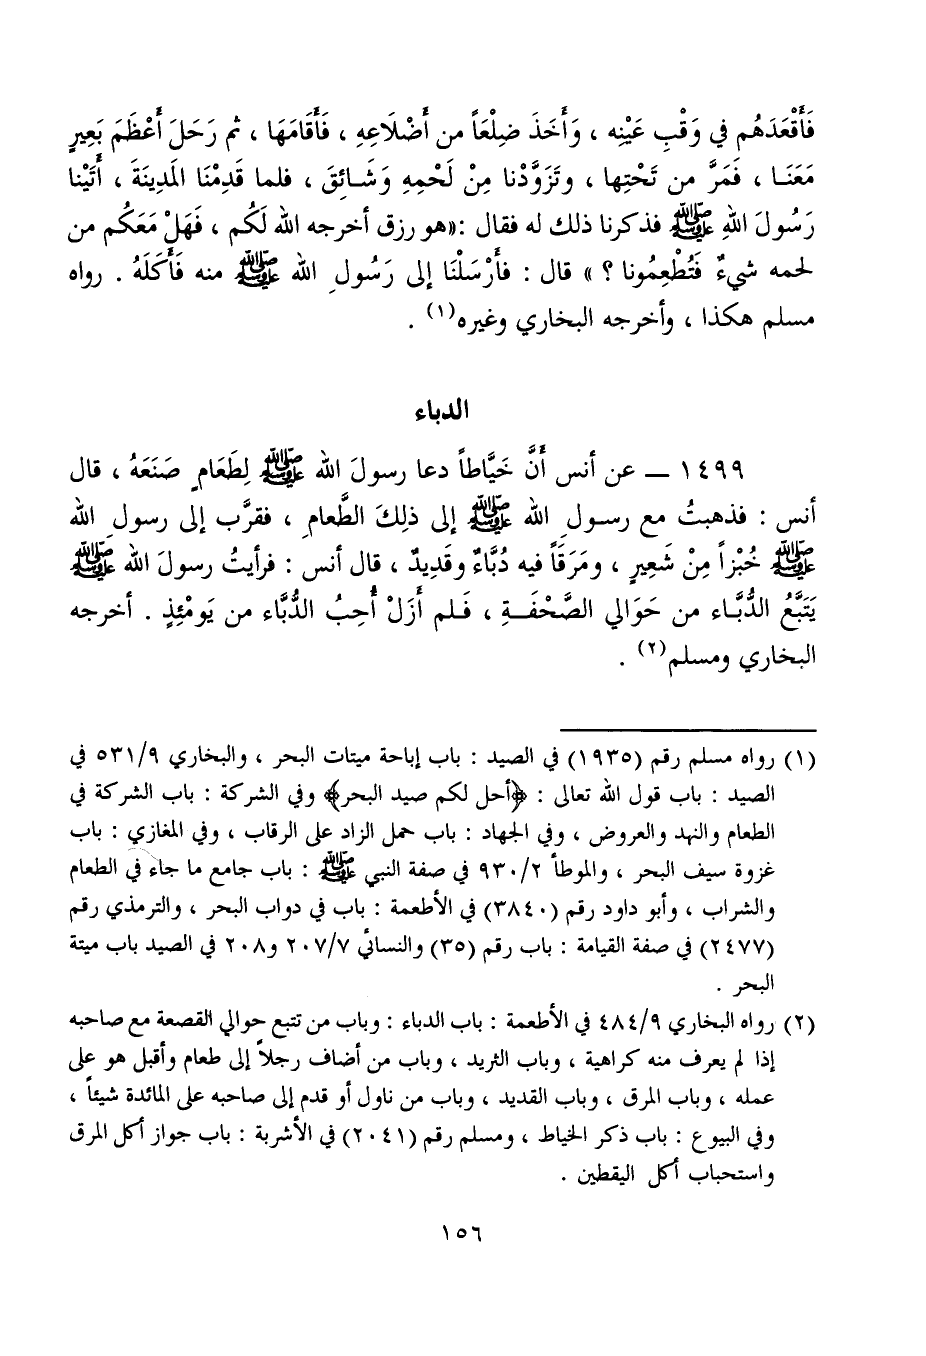 فَأَقْعَدَهُم في وَقْبِ عَيْنِه ، وَأَخَذَ ضِلَعَاً من أَضْلَاعِهِ ، فَأَقَامَهَا ، ثم رَحَلَ أَعْظَمَ بَعِيرٍ
مَعَنَـا ، فَمَرَّ من تَحْتِها ، وتَزَوَّدْنا مِنْ لَحْمِهِ وَشَـائِقَ ، فلما قَدِمْنَا المَدِينَةَ ، أَتَيْنا
رَسُولَ اللهِ ﷺ فذكرنا ذلك له فقال :«هو رزق أخرجه الله لَكُم ، فَهَلْ مَعَكُم من
لحمه شيءٌ فَتُطْعِمُونا ؟ » قال : فأَرْسَلْنَا إلى رَسُولِ الله ﷺ منه فَأَكَلَهُ . رواه
مسلم هكذا ، وأخرجه البخاري وغيره(١) .
الدباء
١٤٩٩ ــ عن أنس أَنَّ خَيَّاطاً دعا رسولَ الله ﷺ لِطَعَامٍ صَنَعَهُ ، قال
أنس : فذهبتُ مع رسـولِ الله ﷺ إلى ذلِكَ الطَّعامِ ، فقرَّب إلى رسولِ الله
ﷺ خُبْزاً مِنْ شَعِيرٍ ، ومَرَقَاً فيه دُبَّاءٌ وقَدِيدٌ ، قال أنس : فرأيتُ رسولَ الله ﷺ
يَتَبَّعُ الدُّبَّـاء من حَوَالي الصَّحْفَــةِ ، فَـلم أَزَلْ أُحِبُ الدُّبَّاء من يَومْئِذٍ . أخرجه
البخاري ومسلم(٢) .
(١) رواه مسلم رقم (١٩٣٥) في الصيد : باب إباحة ميتات البحر ، والبخاري ٥٣١/٩ في
الصيد : باب قول الله تعالى : ﴿أحل لكم صيد البحر﴾ وفي الشركة : باب الشركة في
الطعام والنهد والعروض ، وفي الجهاد : باب حمل الزاد على الرقاب ، وفي المغازي : باب
غزوة سيف البحر ، والموطأ ٩٣٠/٢ في صفة النبي ﷺ : باب جامع ما جاء في الطعام
والشراب ، وأبو داود رقم (٣٨٤٠) في الأطعمة : باب في دواب البحر ، والترمذي رقم
(٢٤٧٧) في صفة القيامة : باب رقم (٣٥) والنسائي ٢٠٧/٧ و٢٠٨ في الصيد باب ميتة
البحر .
(٢) رواه البخاري ٤٨٤/٩ في الأطعمة : باب الدباء : وباب من تتبع حوالي القصعة مع صاحبه
إذا لم يعرف منه كراهية ، وباب الثريد ، وباب من أضاف رجلاً إلى طعام وأقبل هو على
عمله ، وباب المرق ، وباب القديد ، وباب من ناول أو قدم إلى صاحبه على المائدة شيئاً ،
وفي البيوع : باب ذكر الخياط ، ومسلم رقم (٢٠٤١) في الأشربة : باب جواز أكل المرق
واستحباب أكل اليقطين .
١٥٦